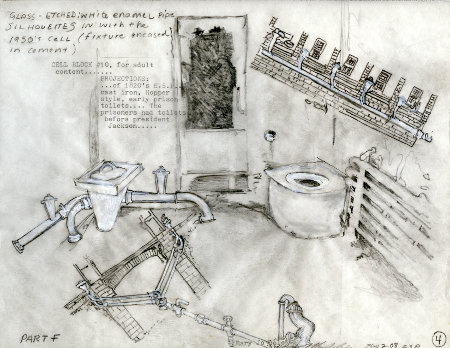 GLASS-ETCHED: white enamel pipe
SILHOUETTES IN with the
1930's cell (fixture encased
in cement)
CELL BLOCK #10, for adult
content.......
PROJECTIONS:
...of 1820's E.S.
cast iron, Hopper
style, early prison
toilets.... The
prisoners had toilets
before president
Jackson.....
PART F
2007-08 ESP
4